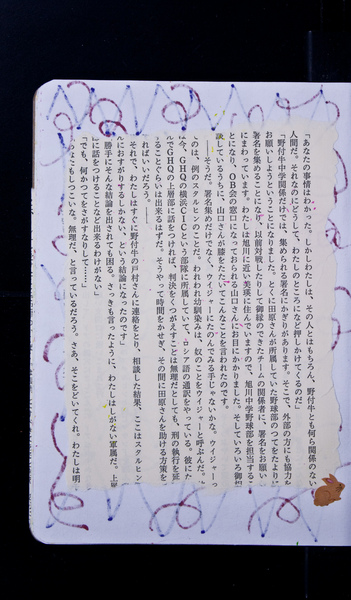 「あなたの事情はわかった。しかしわたしは、その人とはもちろん、野付牛とも何ら関係のない
人間だ。それなのにどうして、わたしのところになど押しかけてくるのだ」
「野付牛中学関係だけでは、集められる署名にかぎりがあります。そこで、外部の方にも協力を
お願いしようということになりました。とくに田原さんが所属していた野球部のつてをたより
署名を集めることになり、以前対戦したりして御縁のできたチームの関係者に、署名をお願い
にまわっています。わたしは旭川に近い美瑛に住んでいますので、旭川中学野球部を担当する
とになり、OB会の窓口になっておられる山口さんにお目にかかりました。そしていろいろ御
談しているうちに、山口さんが膝をたたいてこんなことを言われたのです。
――そうだ、署名集めだけでなく、ウイジャーにたのんでみる手じゃないかな。ウイジャーっ
てのは、例のスタルヒンのことだ。われわれ幼馴染みは、奴のことをウイジャーと呼ぶんだ。
は今、GHQの横浜CICという部隊に所属していて、ロシア語の通訳をやっている。彼にた
んでGHQの上層部に話をつければ、判決をくつがえすことは無理だとしても、刑の執行を延
することぐらいは出来るはずだ。そうやって時間をかせぎ、その間に田原さんを助ける方策を
ればいいだろう。――
それで、わたしはすぐに野付牛の戸村さんに連絡をとり、相談した結果、ここはスタルヒン
におすがりするしかない、という結論になったのです」
「勝手にそんな結論を出されても困る。さっきも言ったように、わたしはしがない軍属だ。上
に話をつけることなど出来るわけがない」
「でも、何かつてをさがすなりして……」
「あなたもしつこいな。無理だ、と言っているだろう。さあ、そこをどいてくれ。わたしは明